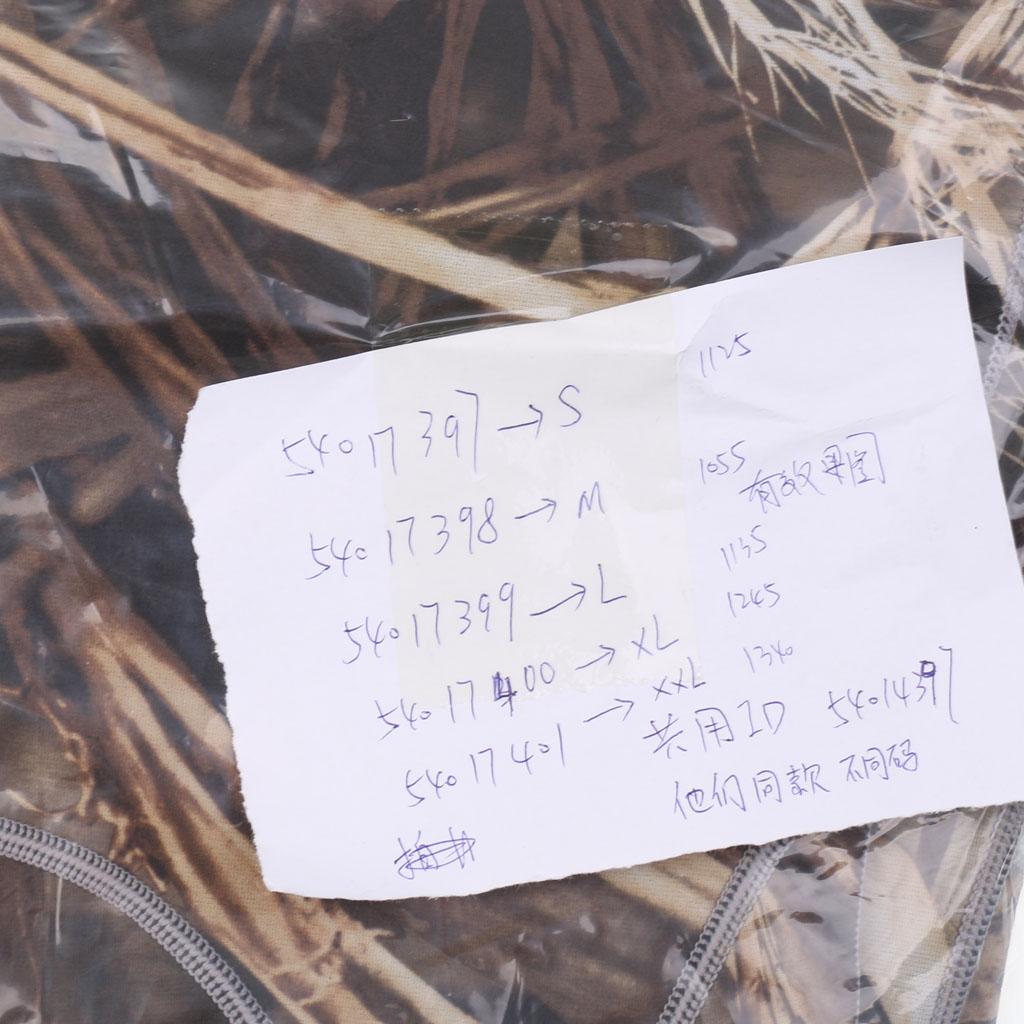 54017397→S 1125
54017398→M 1055
有效果图
54017399→L 1135
54017400→XL 1245
54017401→XXL 1340
共用ID 54014397
他们同款不同码